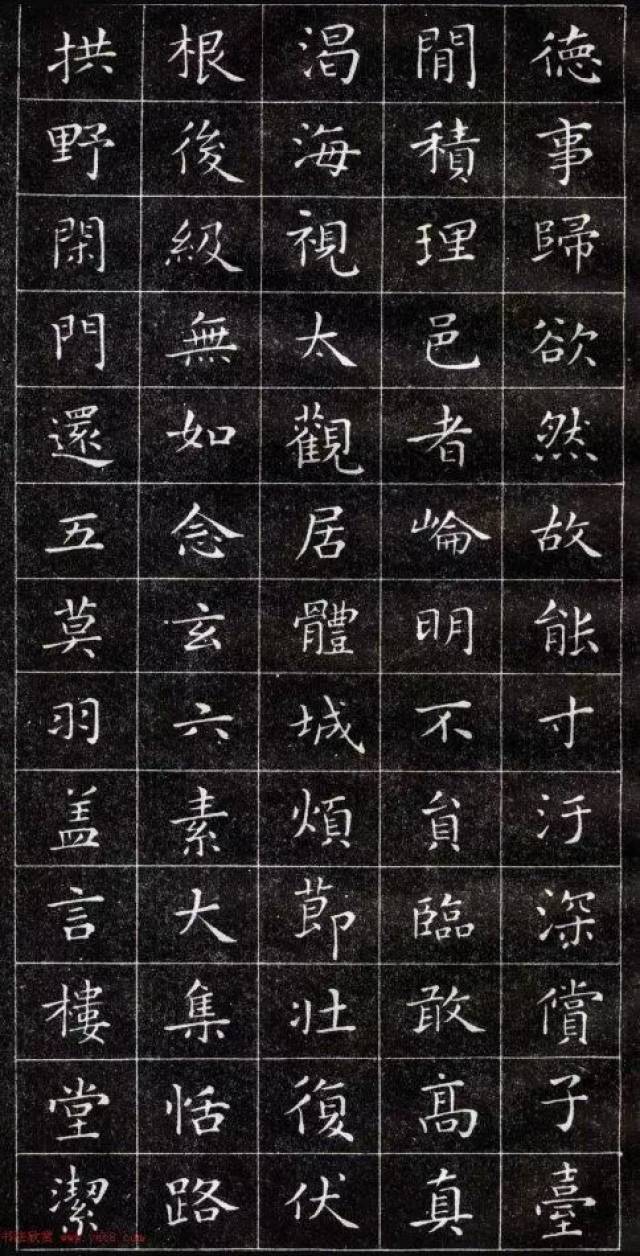 德事歸欲然故能寸汙深償子臺
閒積理邑者崘明不貟臨敢高真
渴海視太觀居體城煩節壯復伏
根後級無如念玄六素大集恬路
拱野閑門還五莫羽盖言樓堂潔
书法欣赏 www.yac8.com